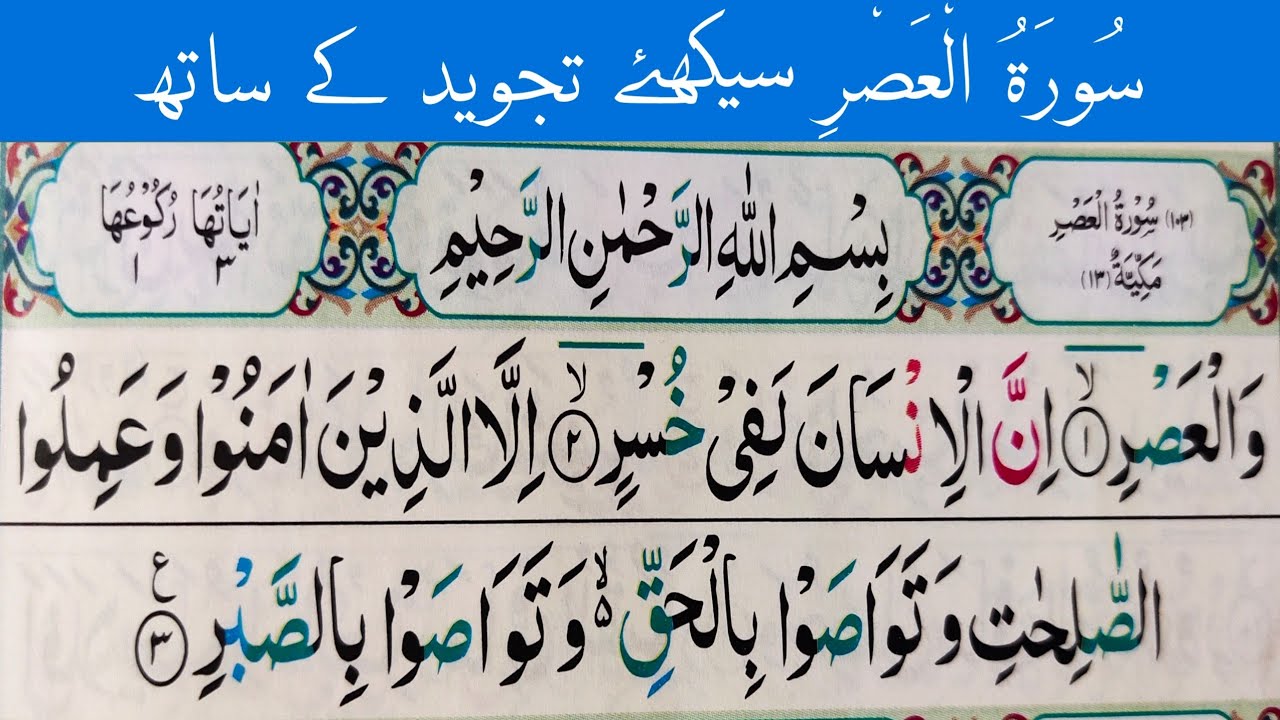 سُورَةُ الْعَصْرِ سیکھئے تجوید کے ساتھ
(۱۰۳) سُوْرَةُ الْعَصْرِ
مَكِّيَّةٌ (۱۳)
بِسْمِ اللّٰهِ الرَّحْمٰنِ الرَّحِيْمِ
اٰيَاتُهَا رُكُوْعُهَا
۳ ۱
وَالْعَصْرِ ۙ‏﴿۱﴾ اِنَّ الْاِنْسَانَ لَفِیْ خُسْرٍ ۙ‏﴿۲﴾ اِلَّا الَّذِيْنَ اٰمَنُوْا وَ عَمِلُوا
الصّٰلِحٰتِ وَ تَوَاصَوْا بِالْحَقِّ ۙ۵ وَ تَوَاصَوْا بِالصَّبْرِ ﴿۳﴾ ع